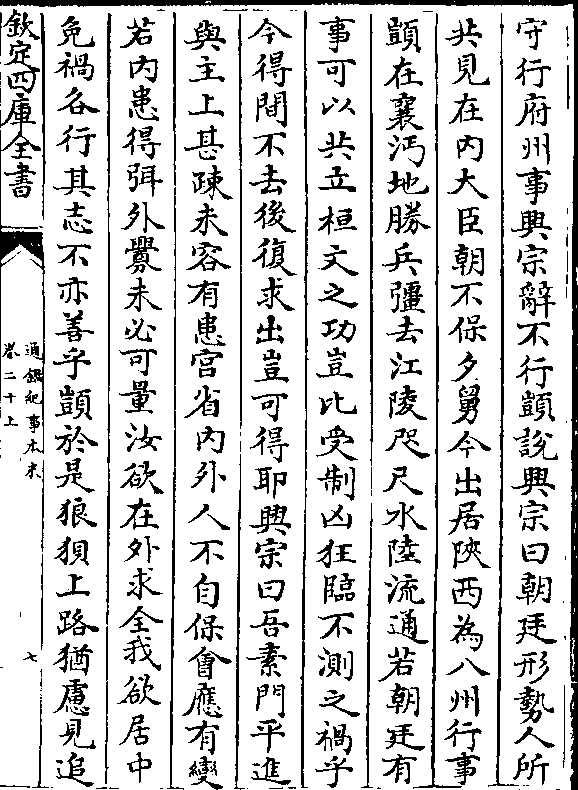 守行府州事興宗辭不行顗說興宗曰朝廷形勢人所
共見在内大臣朝不保夕舅今出居陜西為八州行事
顗在襄沔地勝兵彊去江陵咫尺水陸流通若朝廷有
事可以共立桓文之功豈比受制凶狂臨不測之禍乎
今得間不去後復求出豈可得耶興宗曰吾素門平進
與主上甚疎未容有患宮省内外人不自保㑹應有變
若内患得弭外釁未必可量汝欲在外求全我欲居中
免禍各行其志不亦善乎顗於是狼狽上路猶慮見追
欽定四庫全書
通鑑紀事本末
卷二十上
七